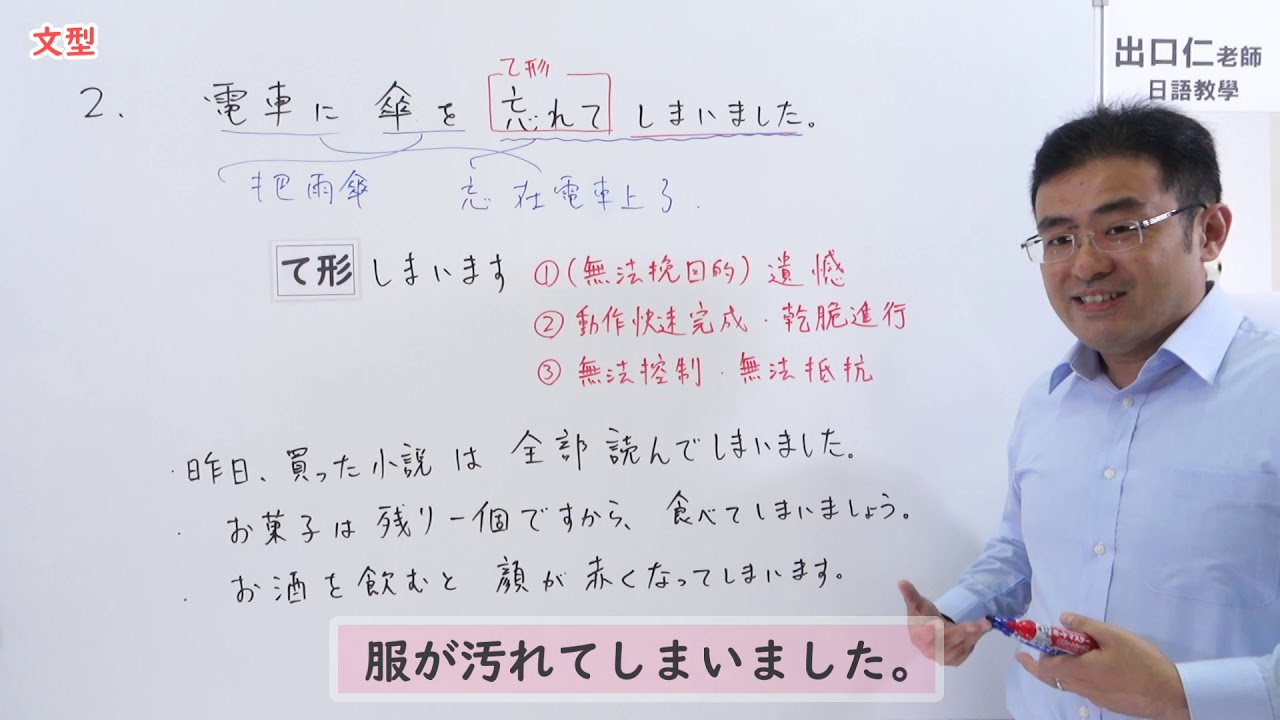 文型
出口仁老師
日語教學
て形
2. 電車に 傘を 忘れて しまいました。
把雨傘 忘在電車上了.
て形 しまいます ①(無法挽回的)遺憾
②動作快速完成.乾脆進行
③無法控制.無法抵抗
・昨日、買った小説は全部読んでしまいました。
・お菓子は残り一個ですから、食べてしまいましょう。
・お酒を飲むと顔が赤くなってしまいます。
服が汚れてしまいました。